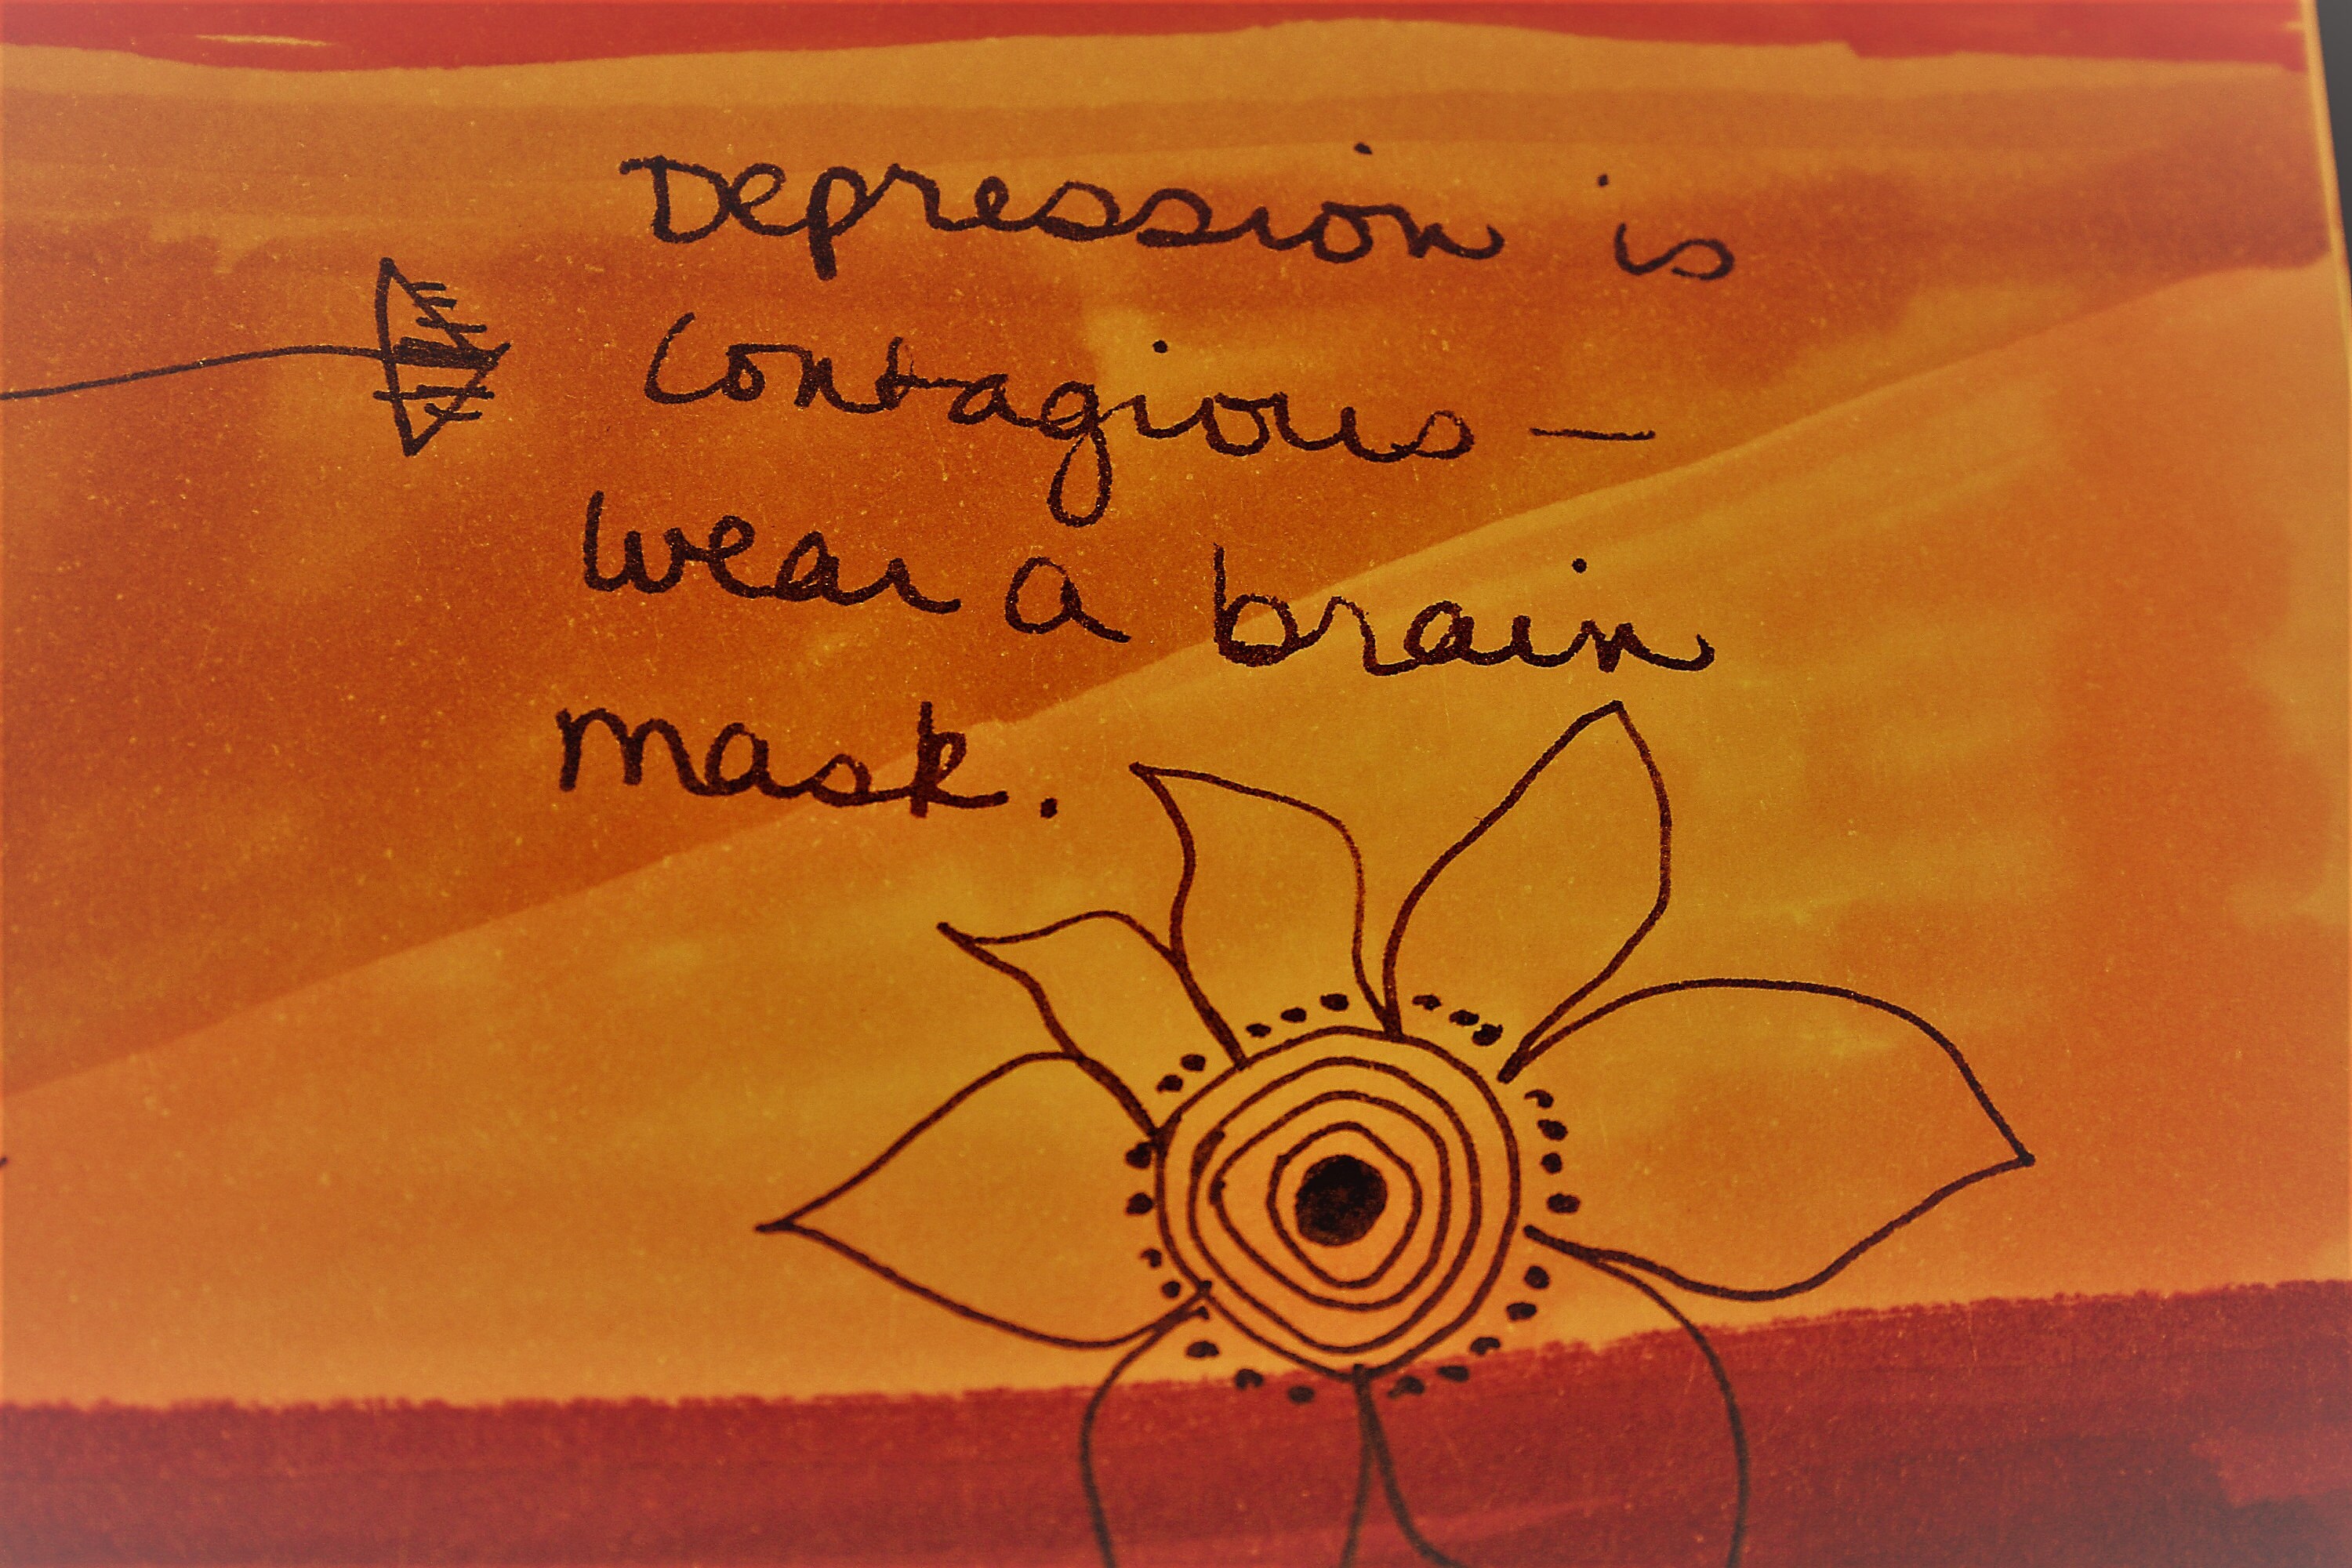 Depression is
contagious —
wear a brain
mask.